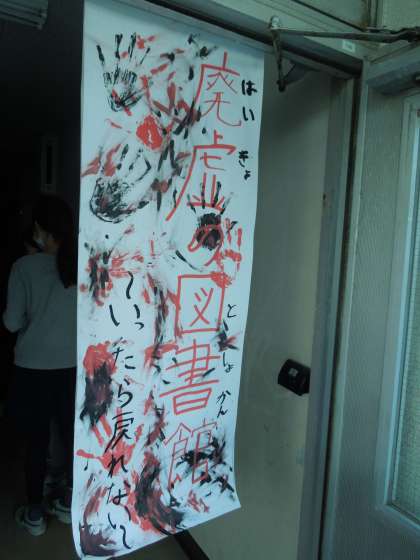 はい きょ としょ かん
廃虚の図書館
〜いったら戻れない〜